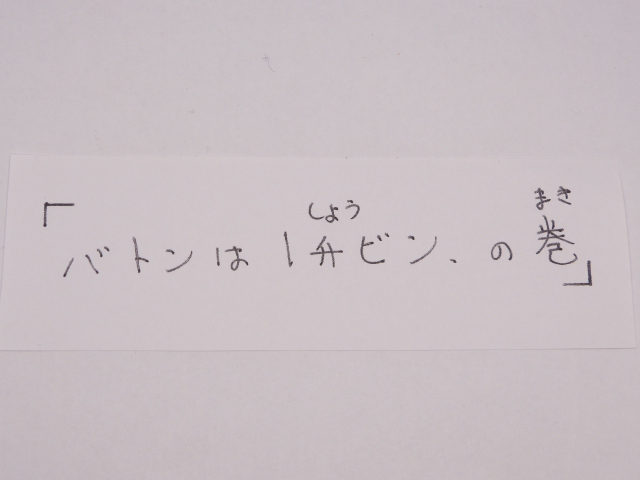 しょう まき
「バトンは1升ビン、の巻」